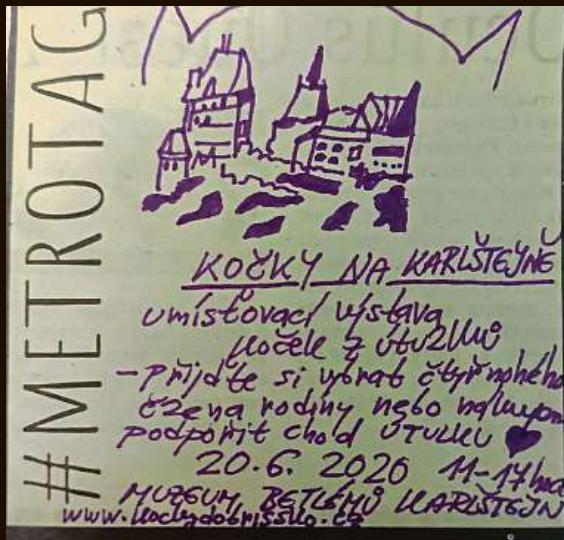 #METROTAG
KOČKY NA KARLŠTEJNĚ
umísťovací výstava
koček z útulků
- přijďte si vybrat čtyřnohého
člena rodiny nebo nákupem
podpořit chod ÚTULKU ♥
20.6. 2020 11-17 hod
MUZEUM BETLÉMŮ KARLŠTEJN
www.kockydobrissko.cz